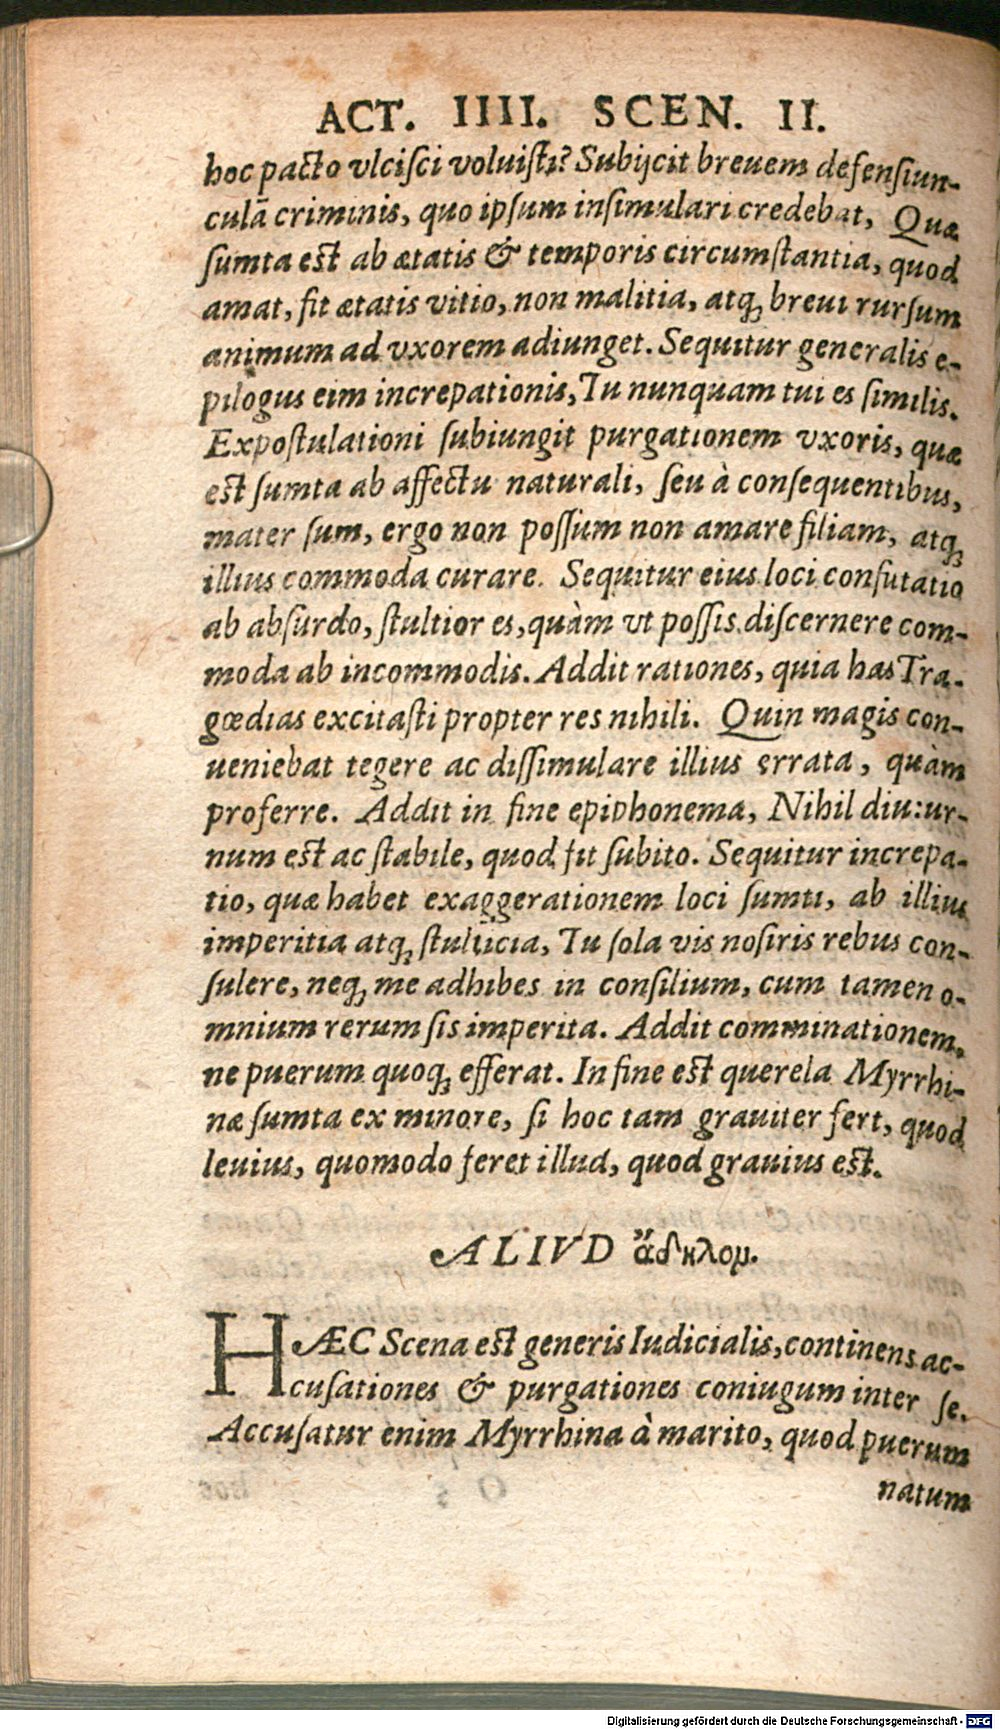 ACT. IIII. SCEN. II.
hoc pacto vlcisci voluisti? Subijcit breuem defensiun-
culã criminis, quo ipsum insimulari credebat, Quæ
sumta est ab ætatis & temporis circumstantia, quod
amat, fit ætatis vitio, non malitia, atq; breui rursum
animum ad vxorem adiunget. Sequitur generalis e-
pilogus eim increpationis, Tu nunquam tui es similis.
Expostulationi subiungit purgationem vxoris, quæ
est sumta ab affectu naturali, seu à consequentibus,
mater sum, ergo non possum non amare filiam, atq;
illius commoda curare. Sequitur eius loci confutatio
ab absurdo, stultior es, quàm vt possis discernere com-
moda ab incommodis. Addit rationes, quia has Tra-
gœdias excitasti propter res nihili. Quin magis con-
ueniebat tegere ac dissimulare illius errata, quàm
proferre. Addit in fine epiphonema, Nihil diu:ur-
num est ac stabile, quod fit subito. Sequitur increpa-
tio, quæ habet exaggerationem loci sumti, ab illius
imperitia atq; stulticia, Tu sola vis nostris rebus con-
sulere, neq; me adhibes in consilium, cum tamen o-
mnium rerum sis imperita. Addit comminationem,
ne puerum quoq; efferat. In fine est querela Myrrhi-
næ sumta ex minore, si hoc tam grauiter fert, quod
leuius, quomodo feret illud, quod grauius est.
ALIVD ἄδηλομ.
HÆC Scena est generis Iudicialis, continens ac-
cusationes & purgationes coniugum inter se.
Accusatur enim Myrrhina à marito, quod puerum
natum
Digitalisierung gefördert durch die Deutsche Forschungsgemeinschaft - DFG